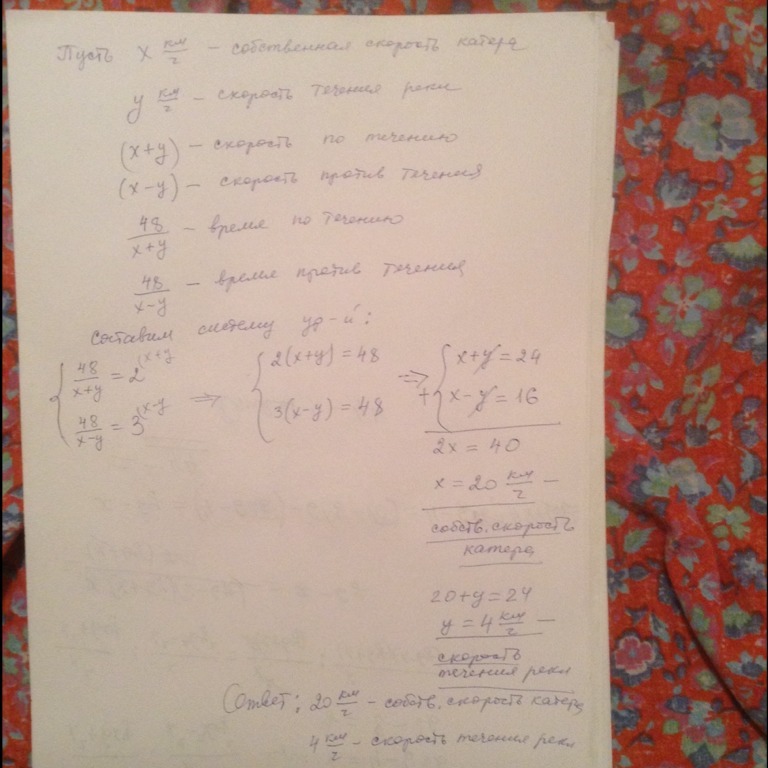 Пусть x км/ч - собственная скорость катера
y км/ч - скорость течения реки
(x+y) - скорость по течению
(x-y) - скорость против течения
48/(x+y) - время по течению
48/(x-y) - время против течения
составим систему ур-й:
{ 48/(x+y) = 2 (x+y => { 2(x+y) = 48 => { x+y = 24
48/(x-y) = 3 (x-y 3(x-y) = 48 + x-y = 16
2x = 40
x = 20 км/ч -
собств. скорость
катера
20+y=24
y = 4 км/ч -
скорость
течения реки
Ответ: 20 км/ч - собств. скорость катера
4 км/ч - скорость течения реки